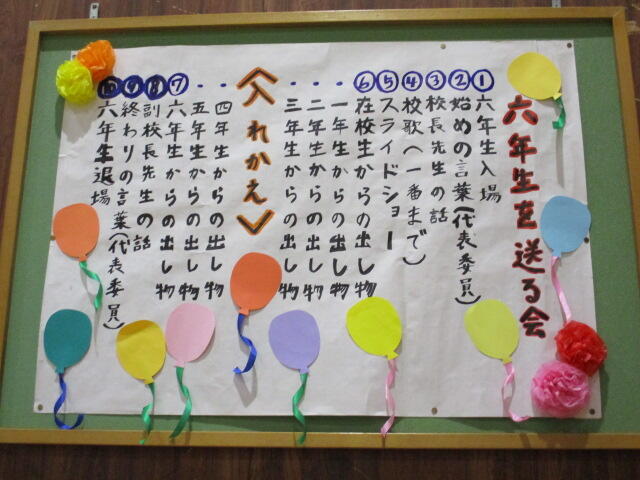 六年生を送る会
①六年生入場
②始めの言葉(代表委員)
③校長先生の話
④校歌(一番まで)
⑤スライドショー
⑥在校生からの出し物
・一年生からの出し物
・二年生からの出し物
・三年生からの出し物
〈入れかえ〉
・四年生からの出し物
・五年生からの出し物
⑦六年生からの出し物
⑧副校長先生の話
⑨終わりの言葉(代表委員)
⑩六年生退場